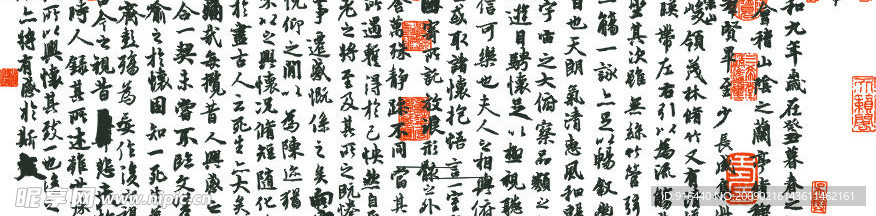 和九年歲在癸丑暮春之
會稽山陰之蘭亭
賢畢至少長咸集此
峻領茂林脩竹又有清
暎帶左右引以為流觴
坐其次雖無絲竹管弦
一觴一詠亦足以暢敘幽
日也天朗氣清惠風和暢
宇宙之大俯察品類之
遊目騁懷足以極視聽
信可樂也夫人之相與俯
或取諸懷抱悟言一室
因寄所託放浪形骸之外
舍萬殊靜躁不同當其
所遇暫得於己怏然自
老之將至及其所之既惓
事遷感慨係之矣向
俛仰之閒以為陳迹猶
不以之興懷況脩短隨化
於盡古人云死生亦大矣
痛哉每攬昔人興感之
合一契未嘗不臨文
喻之於懷固知一死生
齊彭殤為妄作後之視
今之視昔悲夫
時人錄其所述雖世殊
所以興懷其致一也後之
亦將有感於斯文
昵享网 www.nipic.cn
ID:916440 NO:20090216143811462161